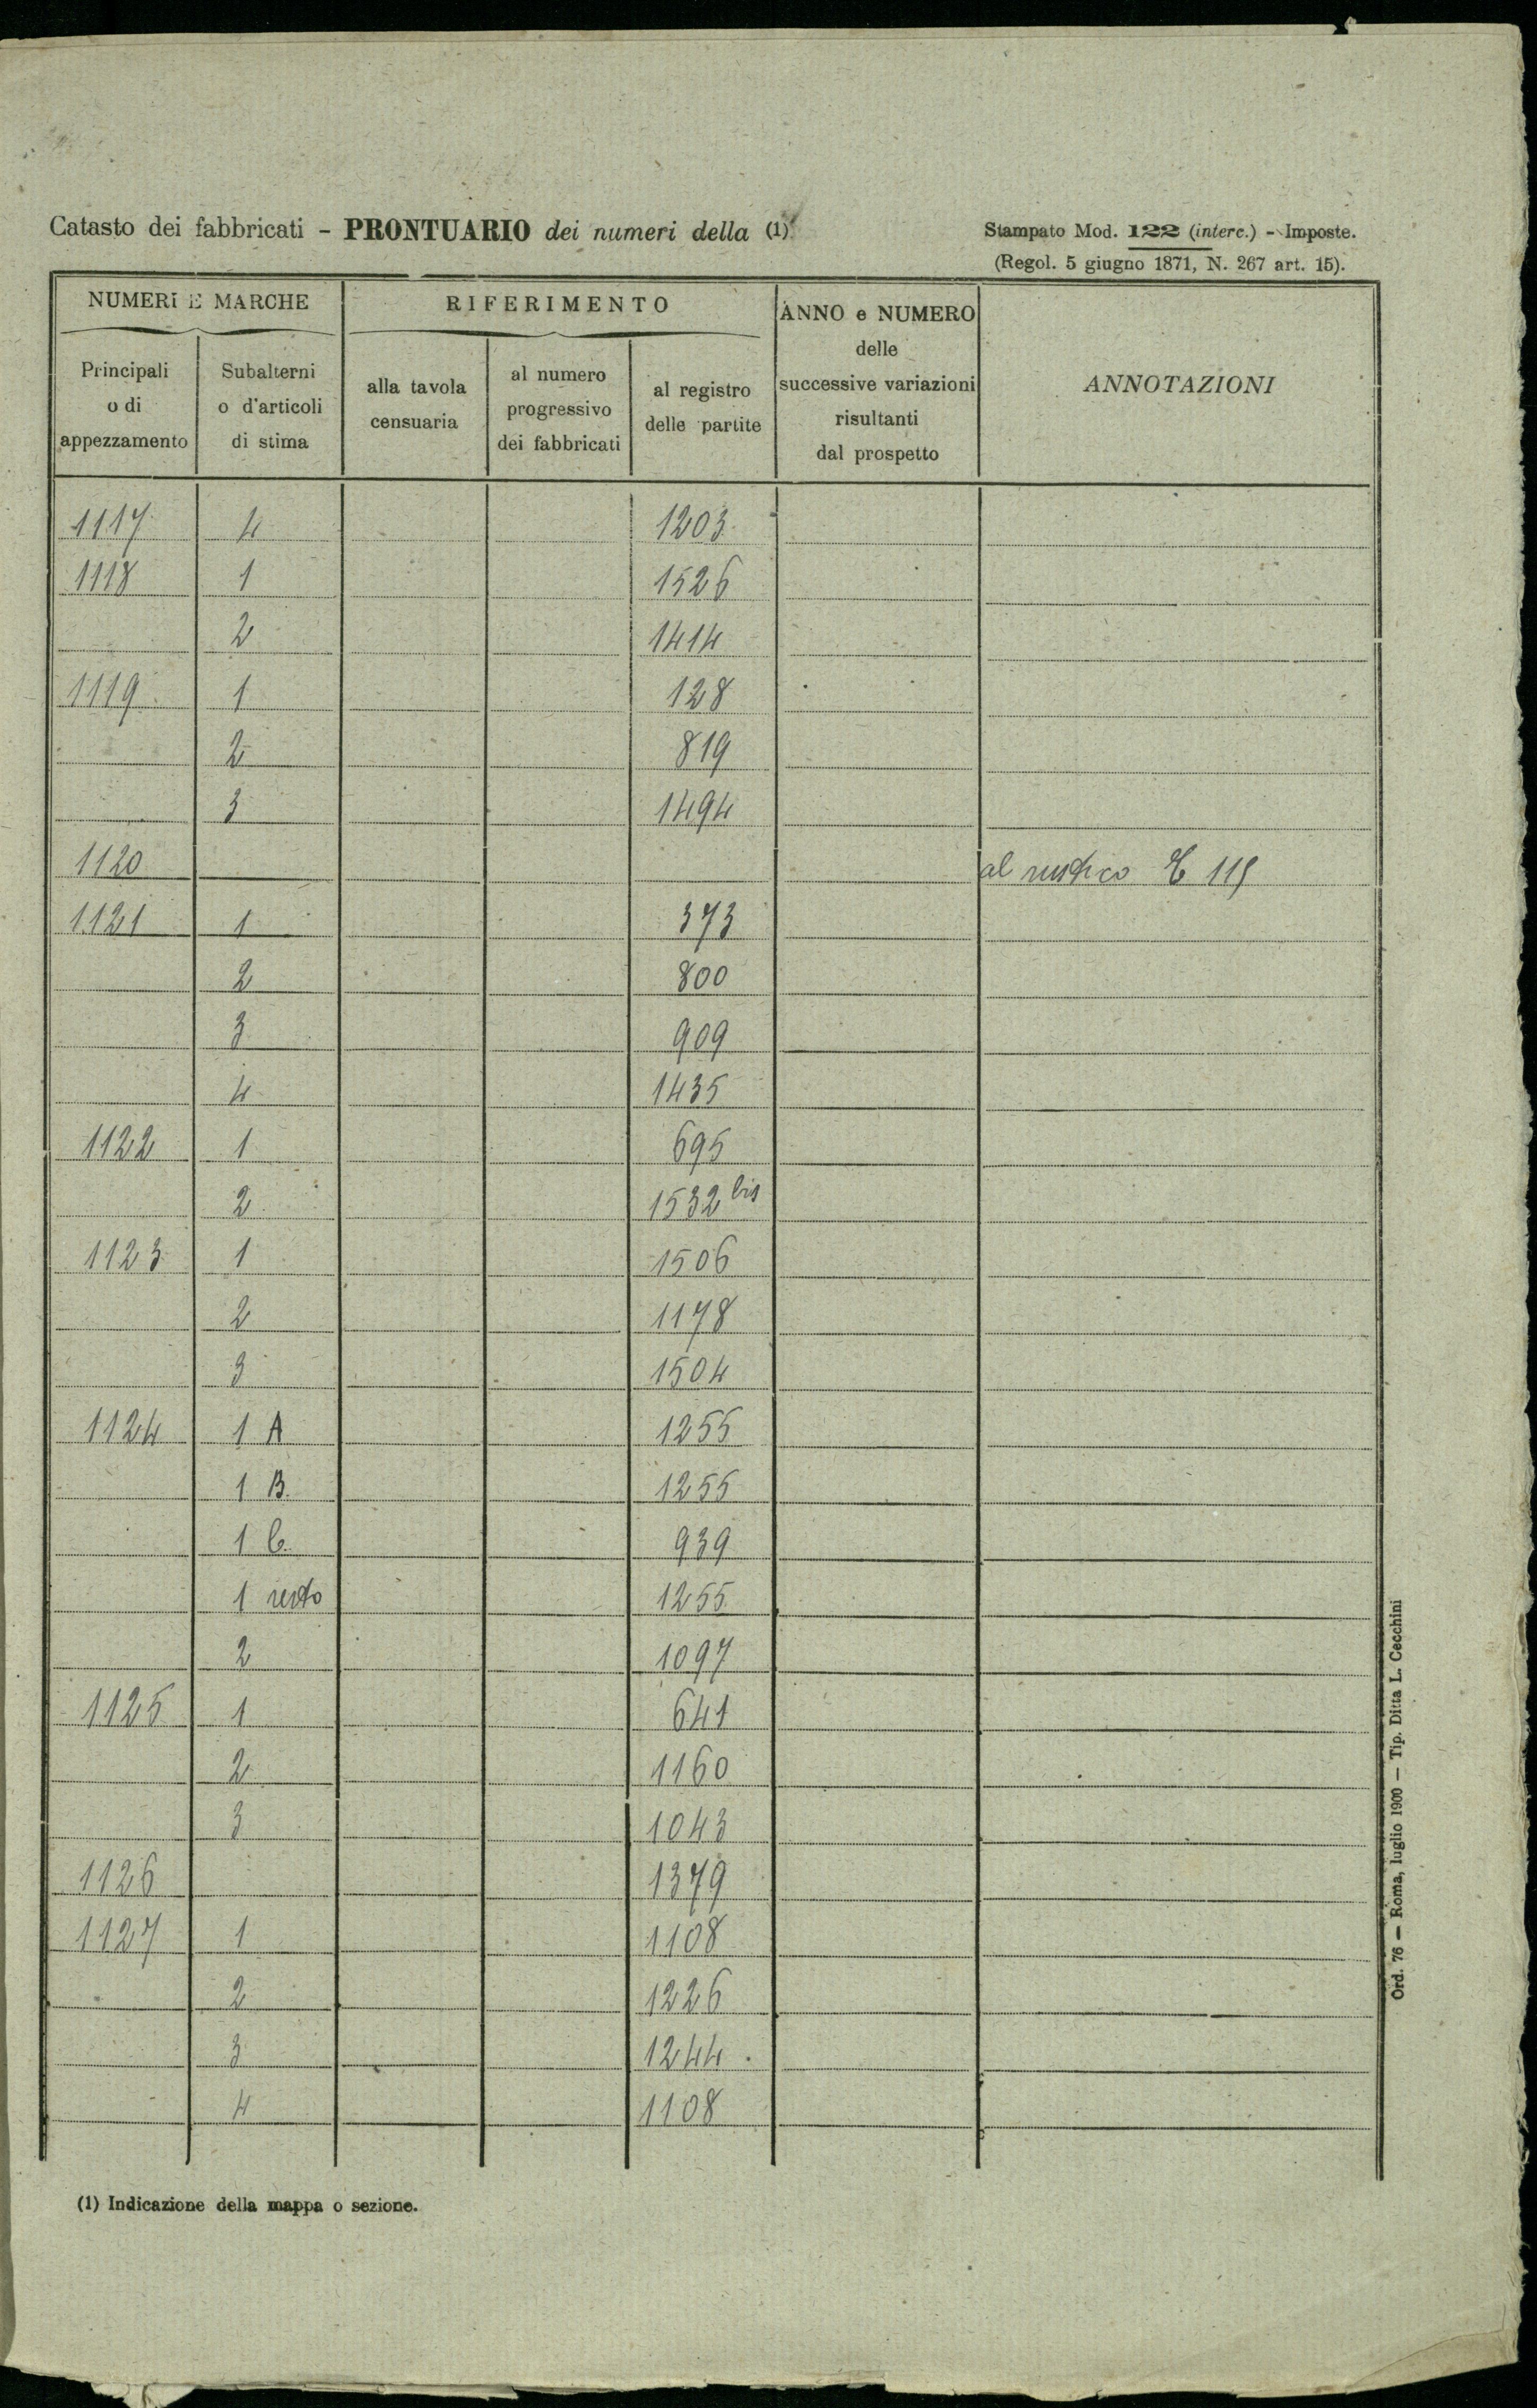 Catasto dei fabbricati - PRONTUARIO dei numeri della (1)
Stampato Mod. 122 (interc.) - Imposte.
(Regol. 5 giugno 1871, N. 267 art. 15).
NUMERI E MARCHE
RIFERIMENTO
ANNO e NUMERO
delle
successive variazioni
risultanti
dal prospetto
ANNOTAZIONI
Principali
o di
appezzamento
Subalterni
o d'articoli
di stima
alla tavola
censuaria
al numero
progressivo
dei fabbricati
al registro
delle partite
1117 4 1203
1118 1 1526
2 1414
1119 1 128
2 819
3 1494
1120 al rustico
1121 1 373
2 800
3 909
4 1435
1122 1 695
2 1532 bis
1123 1 1506
2 1178
3 1504
1124 1 A 1255
1 B 1255
1 C 939
1 resto 1255
2 1097
1125 1 641
2 1160
3 1043
1126 1379
1127 1 1108
2 1226
3 1244
4 1108
(1) Indicazione della mappa o sezione.
Ord. 76 — Roma, luglio 1900 — Tip. Ditta L. Cecchini